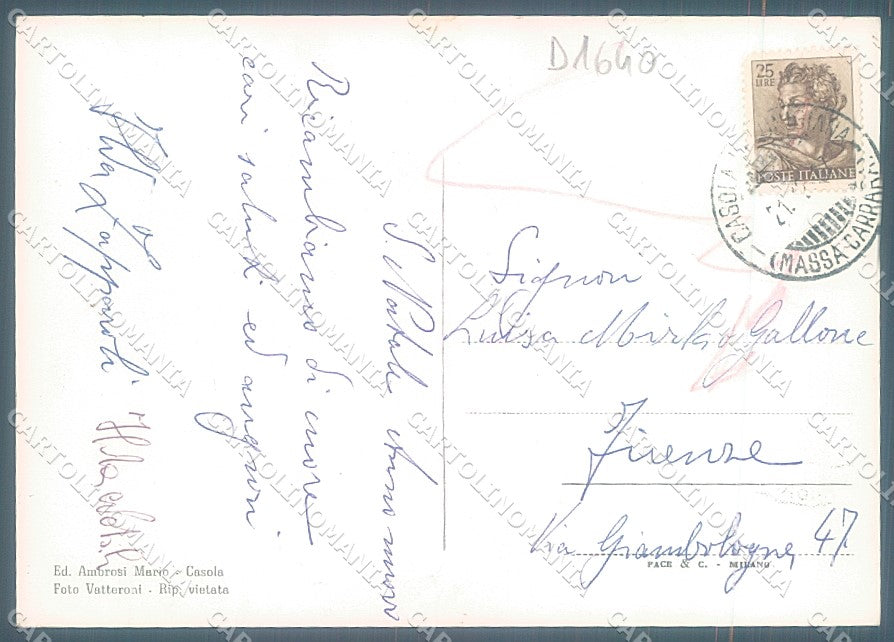 D1640
25
LIRE
POSTE ITALIANE
CASOLA
(MASSA-CARRARA)
S. Natale Anno nuovo
Ricambiamo di cuore
cari saluti ed auguri
Signori
Luisa Mirko Gallone
Firenze
Via Giambologna, 47
Ed. Ambrosi Mario - Casola
Foto Vatteroni - Rip. vietata
PACE & C. - MILANO
CARTOLINOMANIA